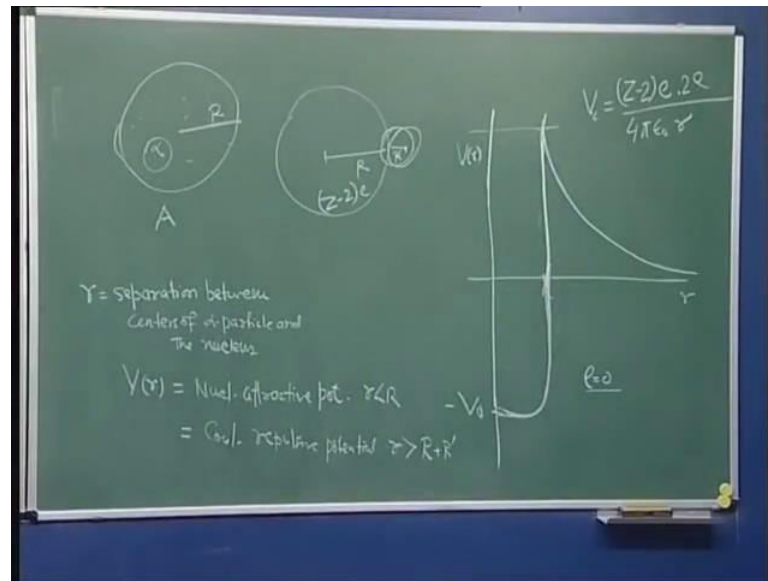 R
α
A
R
R'
(Z-2)e
V(r)
V_c = (Z-2)e.2e / 4πε₀ r
r
-V₀
l=0
r = separation between
centers of α-particle and
the nucleus
V(r) = Nucl. attractive pot. r<R
= Coul. repulsive potential r > R+R'